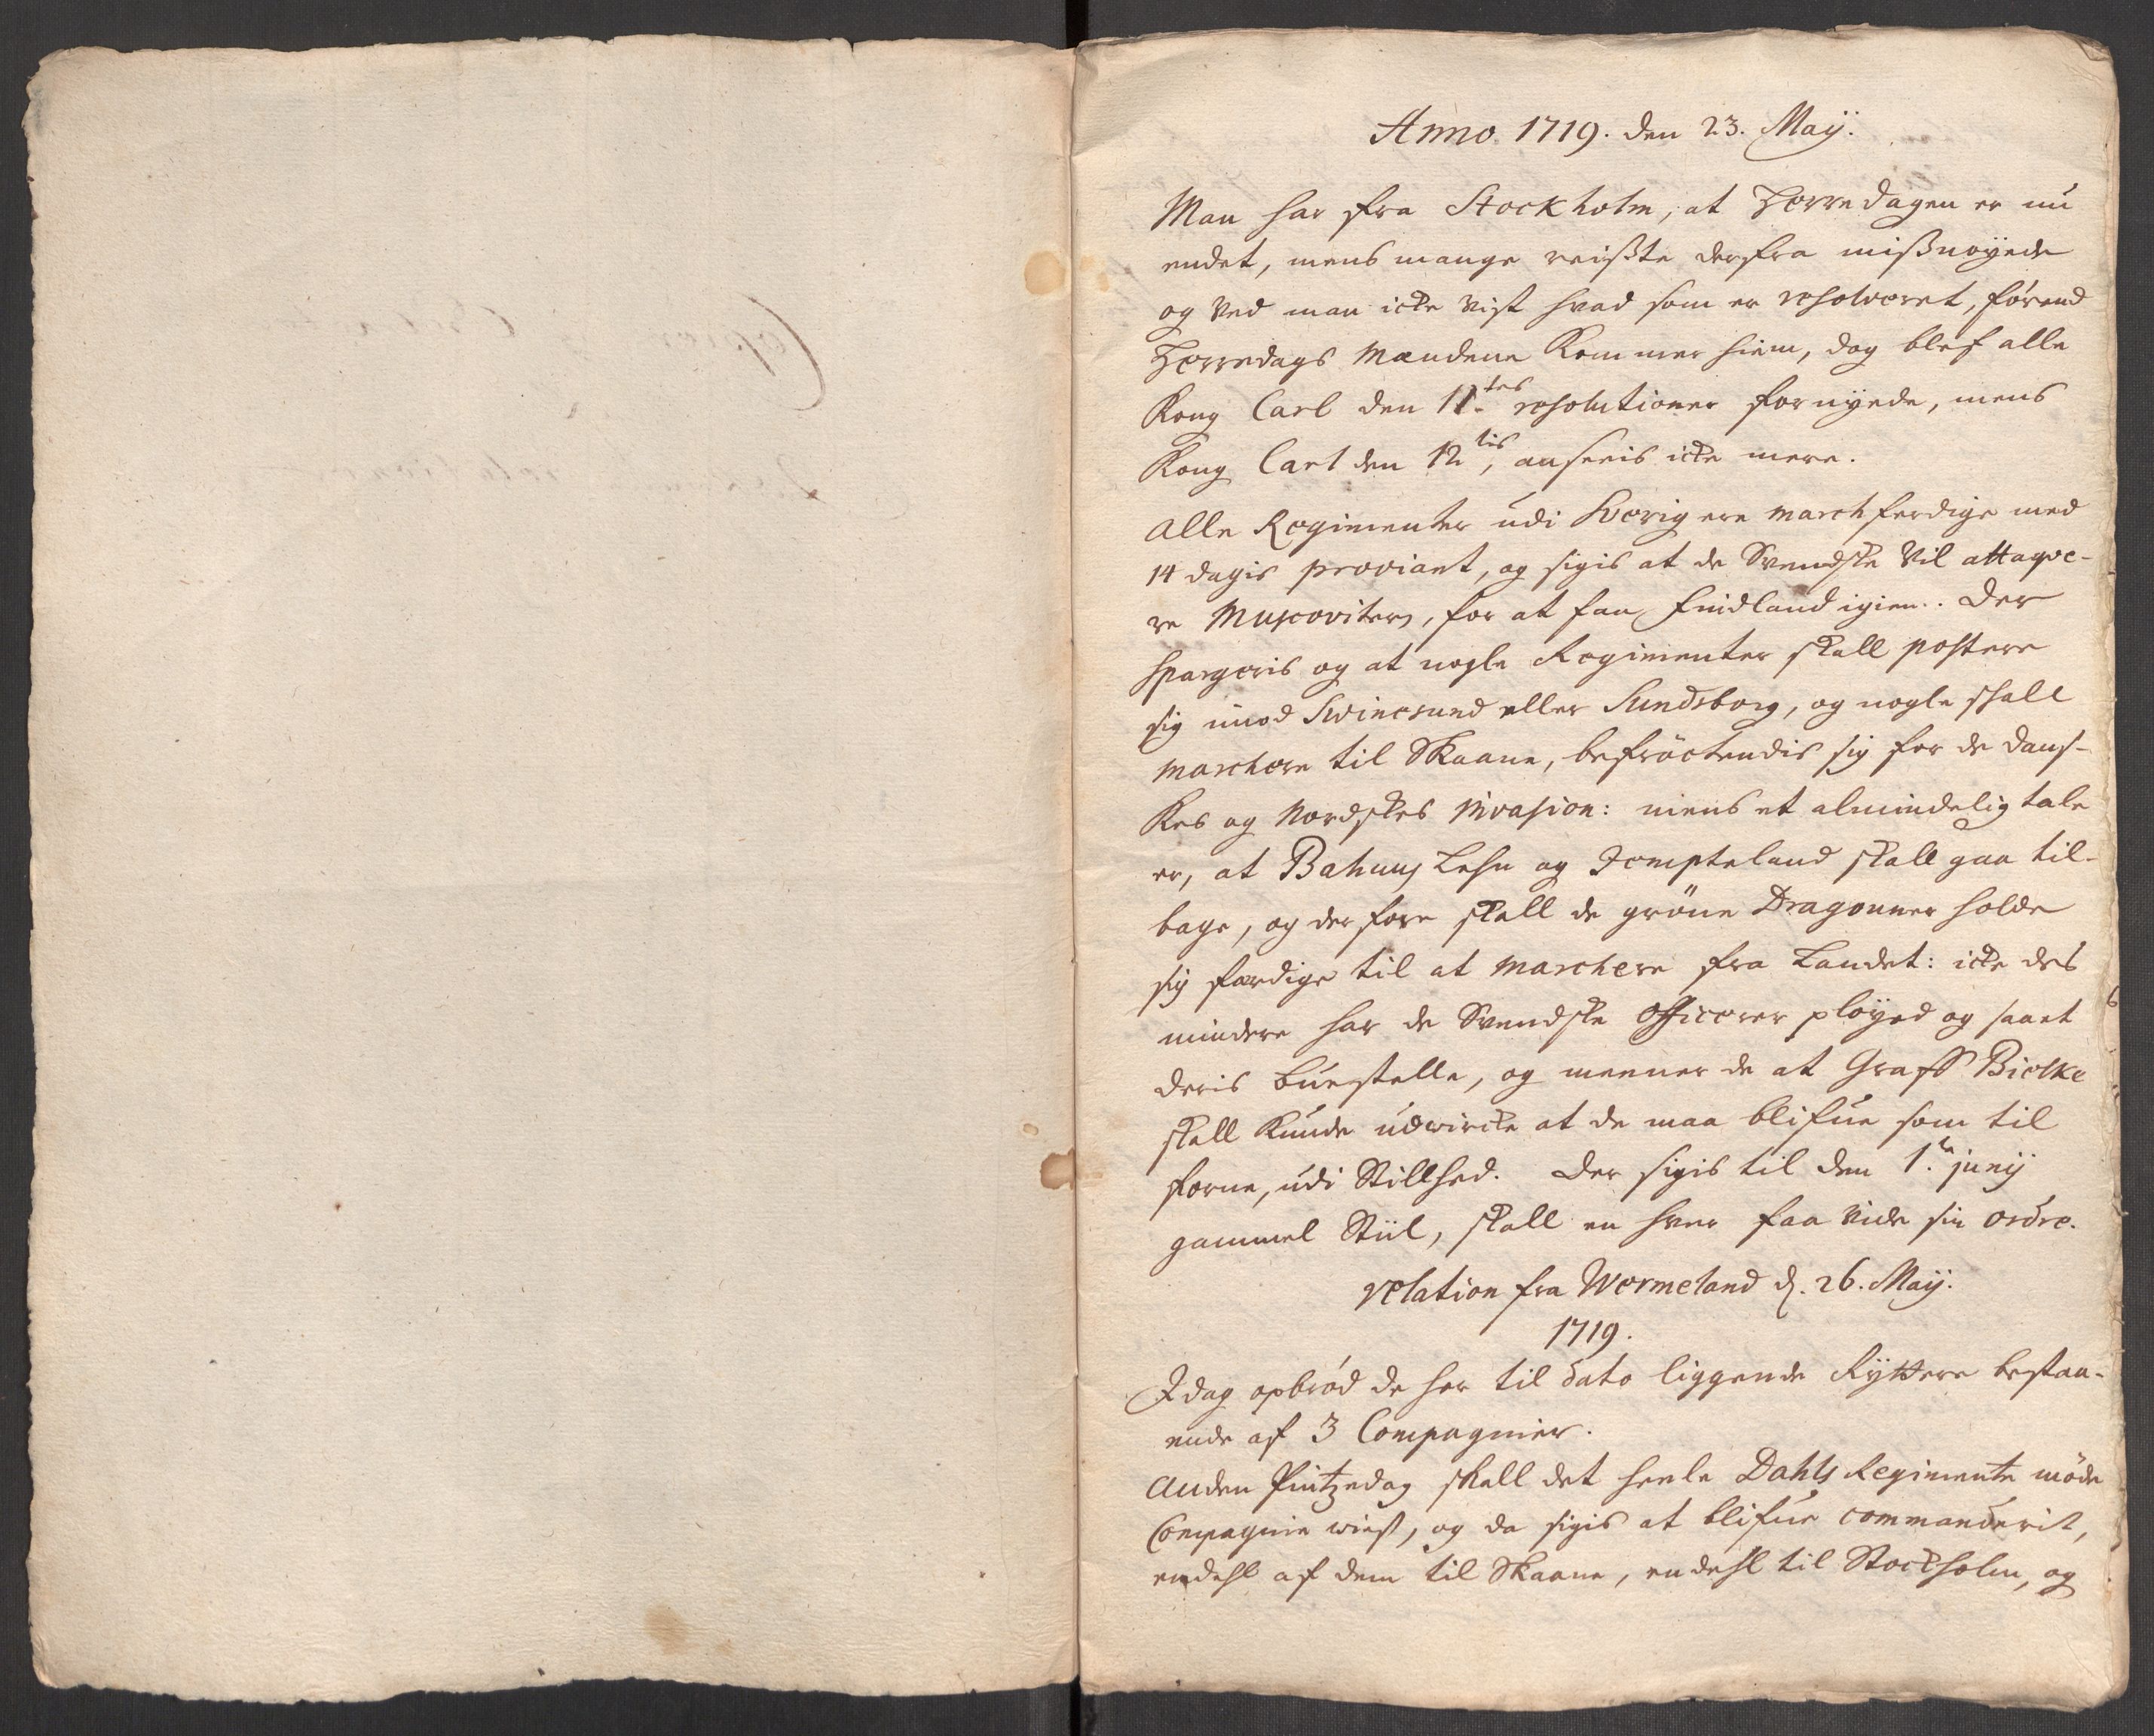 Anno 1719. den 23. Maÿ.
Man har fra Stockholm, at Herredagen er nu
endet, mens mange reißte derfra mißnoyede
og ved man icke vist hvad som er resolveret, førend
Herredags Mændene kommer hiem, dog blef alle
Kong Carl den 11.tes resolutioner fornyede, mens
Kong Carl den 12tis, anseeis icke mere.
Alle Regimenter udi Sverig ere march ferdige med
14 dagis proviant, og sigis at de Svendske vil attaqve-
re Muscoviten, for at faa Findland igien. Der
spargeris og at nogle Regimenter skall postere
sig imod Svinesund eller Sundsborg, og nogle skall
marchere til Skaane, befröctendis sig for de dans-
kes og Nordskes Invasion: mens et almindelig tale
er, at Bahuus Lehn og Jempteland skall gaa til-
bage, og der fore skall de gröne Dragonner holde
sig færdige til at marchere fra Landet: icke des
mindere har de Svendske Officerer ployed og saaet
deris buestelle, og meener de at Graff Bielke
skall kunde udvircke at de maa blifue som til
forne, udi Stillhed. Der sigis til den 1.te junij
gammel Stiil, skall en hver faa vide sin ordre.
relation fra Wermeland d. 26. Maÿ.
1719.
Idag opbrød de her til dato liggende Ryttere bestaa-
ende af 3 Compagnier.
Anden Pintzedag skall det heele Dahls Regimente möde
Compagnie wiis, og da sigis at blifue commanderit,
endehl af dem til Skaane, endehl til Stockholm, og